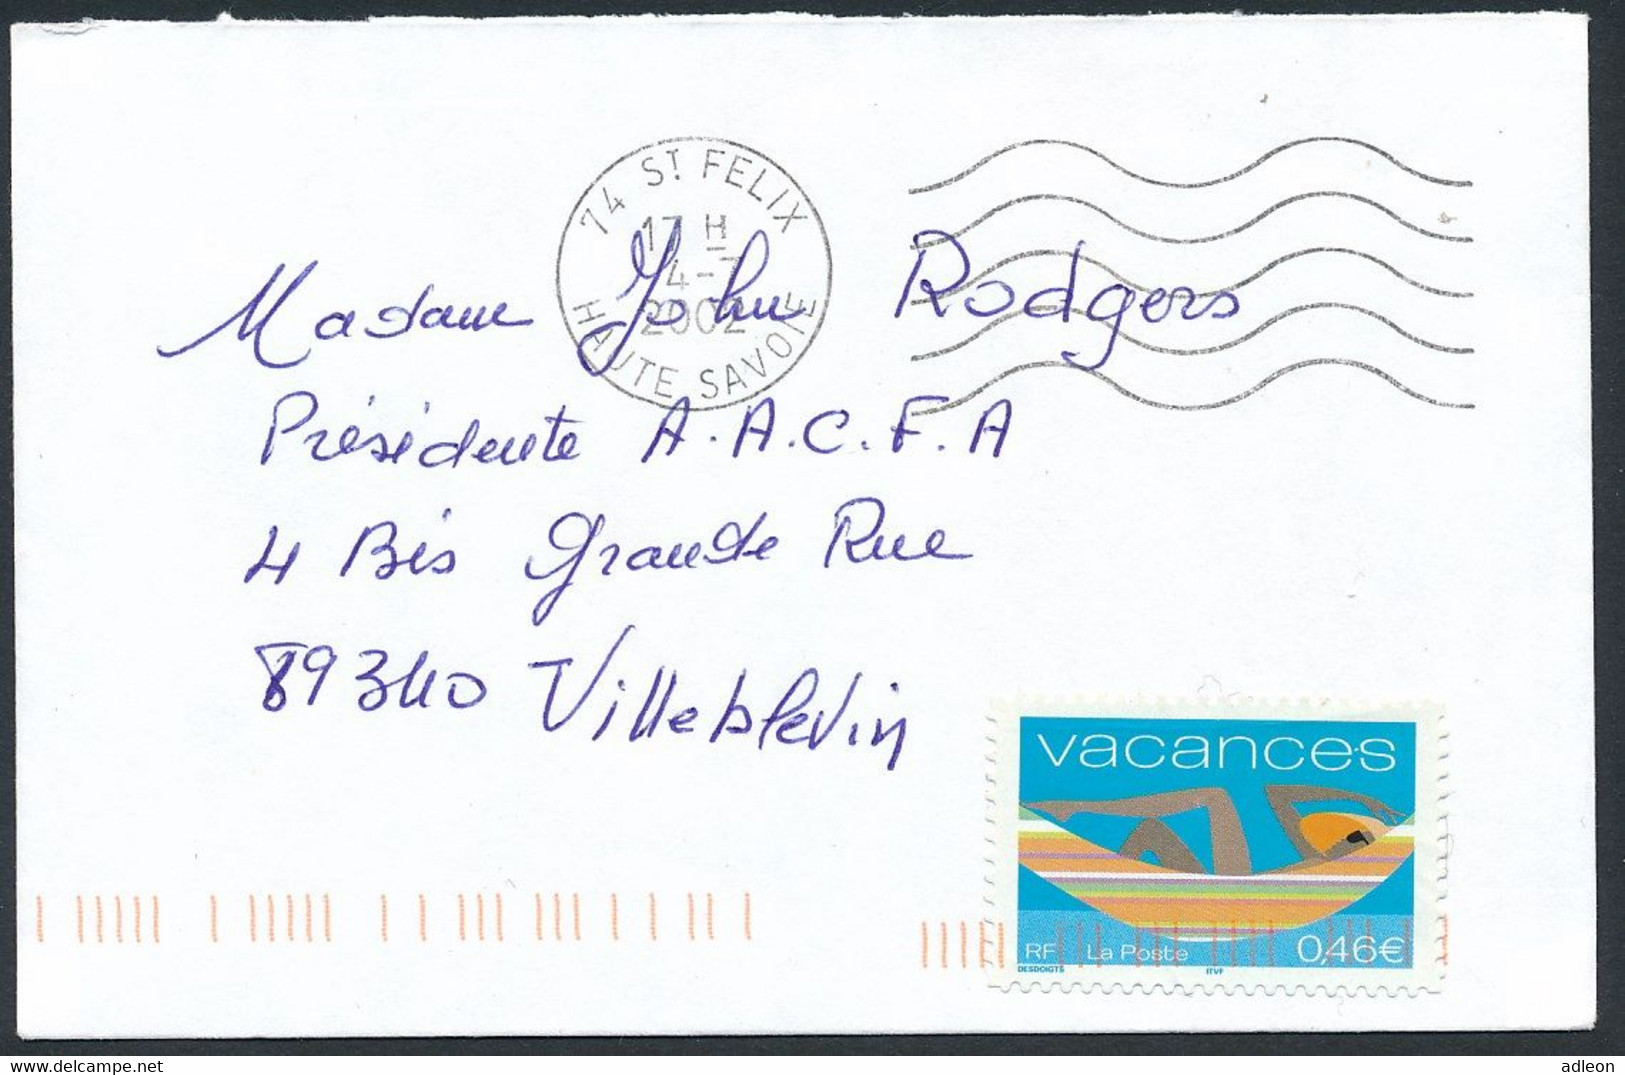 74 ST FELIX
17 H
4-7
2002
HAUTE SAVOIE
Madame John Rodgers
Présidente A.A.C.F.A
4 Bis Grande Rue
89340 Villeblevin
vacances
RF La Poste 0,46€
DESDOIGTS ITVF
adleon